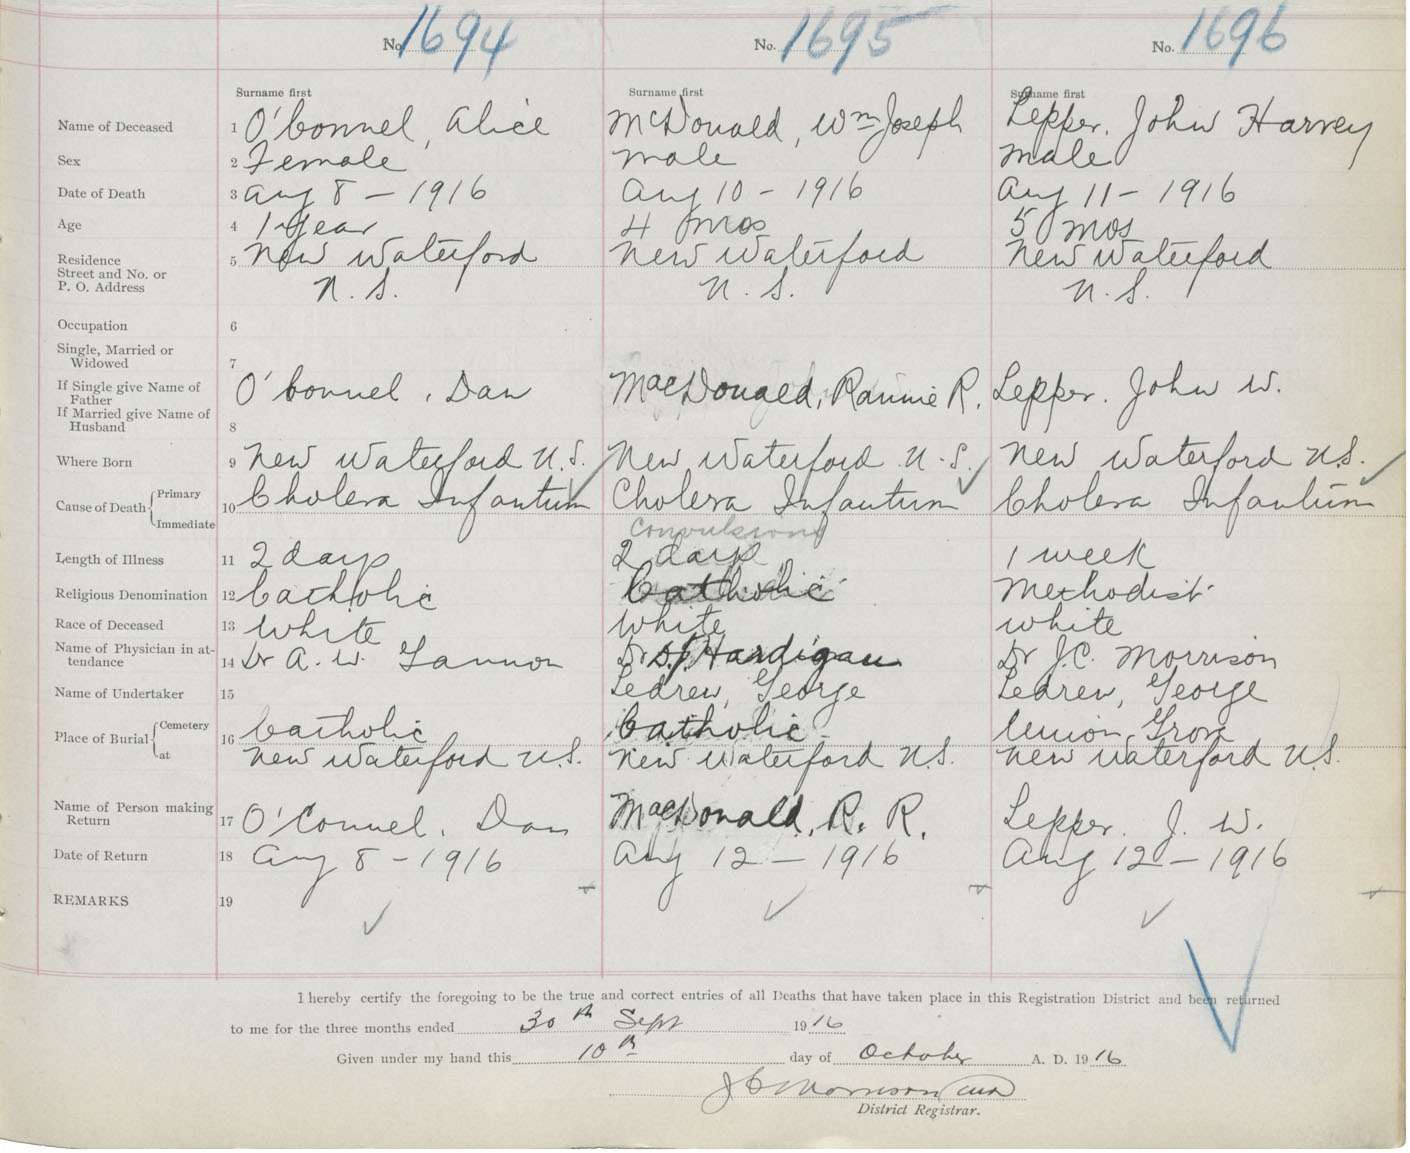 No. 1694 No. 1695 No. 1696
Surname first Surname first Surname first
Name of Deceased 1 O'Connel, Alice McDonald, Wm Joseph Lepper. John Harvey
Sex 2 Female male male
Date of Death 3 Aug 8 - 1916 Aug 10 - 1916 Aug 11 - 1916
Age 4 1 Year 4 mos 5 mos
Residence 5 New Waterford New Waterford New Waterford
Street and No. or
P. O. Address N. S. N. S. N. S.
Occupation 6
Single, Married or
Widowed 7
If Single give Name of
Father O'Connel, Dan MacDonald, Rannie R. Lepper. John W.
If Married give Name of
Husband 8
Where Born 9 New Waterford N.S. New Waterford N.S. New Waterford N.S.
Cause of Death { Primary 10 Cholera Infantum Cholera Infantum Cholera Infantum
Immediate Convulsions
Length of Illness 11 2 days 2 days 1 week
Religious Denomination 12 Catholic Catholic Methodist
Race of Deceased 13 White White White
Name of Physician in at-
tendance 14 Dr A. W. Gannon Dr D.J. Hardigan Dr J.C. Morrison
Name of Undertaker 15 Ledrew, George Ledrew, George
Place of Burial { Cemetery 16 Catholic Catholic Union Grove
at New Waterford N.S. New Waterford N.S. New Waterford N.S.
Name of Person making
Return 17 O'Connel, Dan MacDonald, R. R. Lepper. J. W.
Date of Return 18 Aug 8 - 1916 Aug 12 - 1916 Aug 12 - 1916
REMARKS 19
I hereby certify the foregoing to be the true and correct entries of all Deaths that have taken place in this Registration District and been returned
to me for the three months ended 30th Sept 1916
Given under my hand this 10th day of October A. D. 1916
J C Morrison MD
District Registrar.